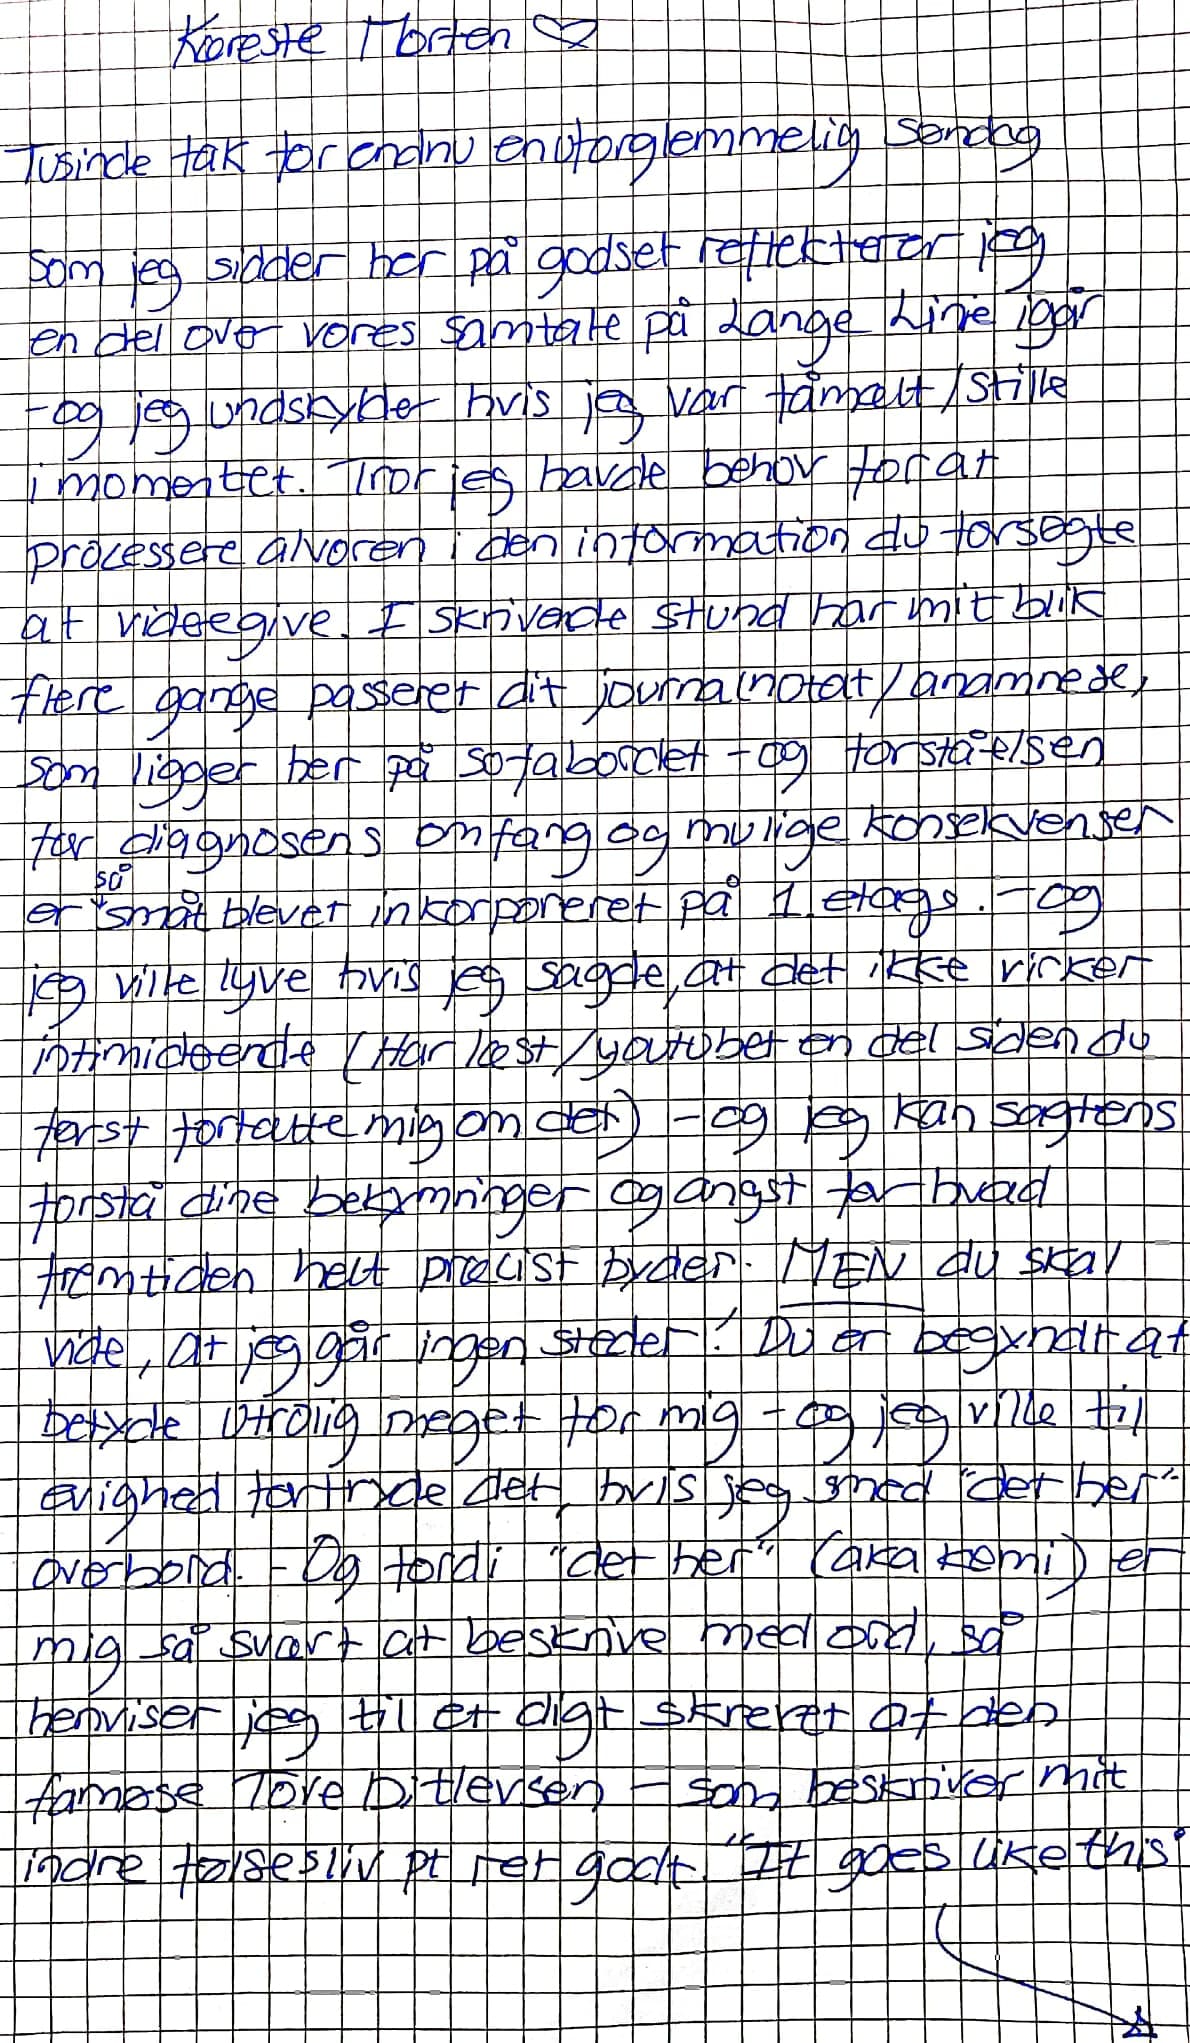 Kæreste Morten ♡
Tusinde tak for endnu en uforglemmelig søndag
Som jeg sidder her på godset reflekterer jeg
en del over vores samtale på Lange Linie igår
- og jeg undskylder hvis jeg var fåmælt/stille
i momentet. Tror jeg havde behov for at
processere alvoren i den information du forsøgte
at videregive. I skrivende stund har mit blik
flere gange passeret dit journalnotat/anamnese,
som ligger her på sofabordet - og forståelsen
for diagnosens omfang og mulige konsekvenser
er så småt blevet inkorporeret på 1. etage. - og
jeg ville lyve hvis jeg sagde, at det ikke virker
intimiderende (Har læst/youtubet en del siden du
først fortalte mig om det) - og jeg kan sagtens
forstå dine bekymringer og angst for hvad
fremtiden helt præcist byder. MEN du skal
vide, at jeg går ingen steder! Du er begyndt at
betyde utrolig meget for mig - og jeg ville til
evighed fortryde det, hvis jeg smed "det her"
overbord. - Og fordi "det her" (aka kemi) er
mig så svært at beskrive med ord, så
henviser jeg til et digt skrevet af den
famøse Tove Ditlevsen - som beskriver mit
indre følsesliv pt ret godt. "It goes like this"